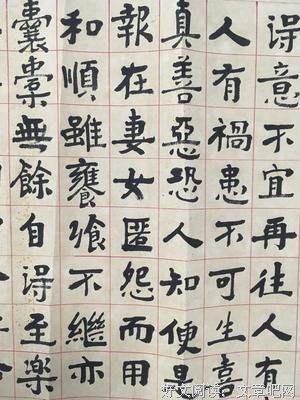 得意不宜再往人有
人有禍患不可生喜
真善惡恐人知便是
報在妻女匿怨而用
和順雖饔飧不繼亦
囊橐無餘自得至樂
好文阅读 文章吧网